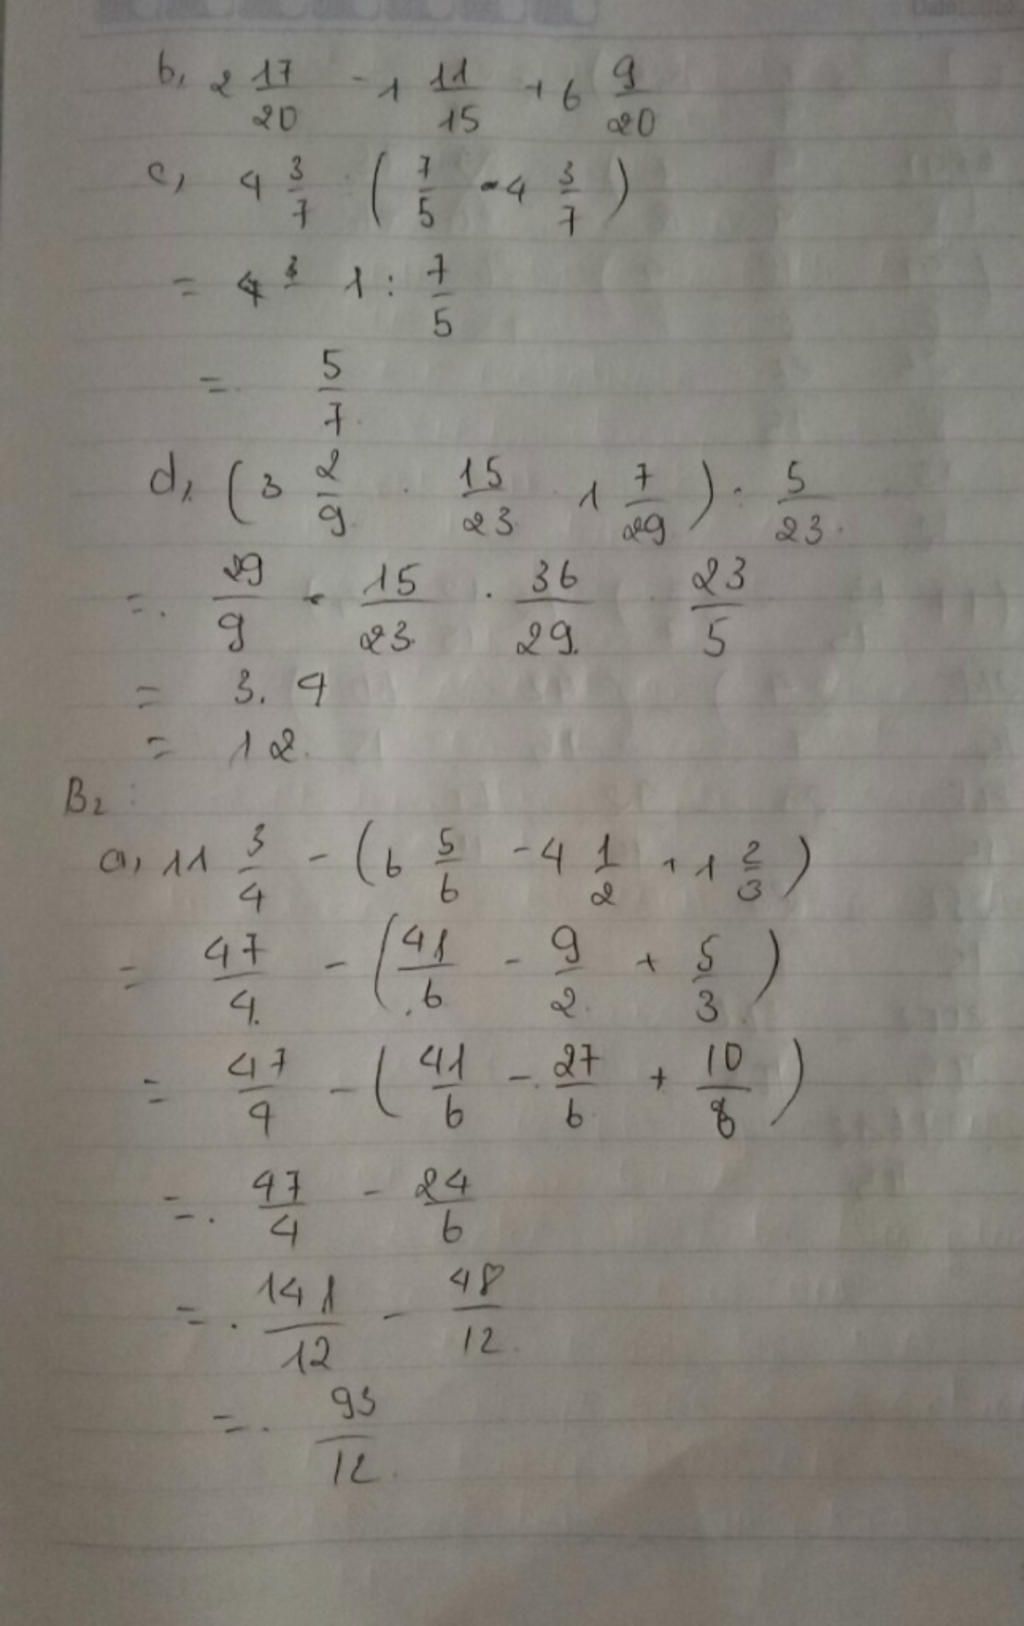 b, 2 17/20 - 1 11/15 + 6 9/20
c, 4 3/7 : (7/5 · 4 3/7)
= 4 3 1 : 7/5
= 5/7
d, (3 2/9 · 15/23 · 1 7/29) : 5/23
= 29/9 · 15/23 · 36/29 · 23/5
= 3. 4
= 12
B2:
a, 11 3/4 - (6 5/6 - 4 1/2 + 1 2/3)
= 47/4 - (41/6 - 9/2 + 5/3)
= 47/4 - (41/6 - 27/6 + 10/6)
= 47/4 - 24/6
= 141/12 - 48/12
= 93/12